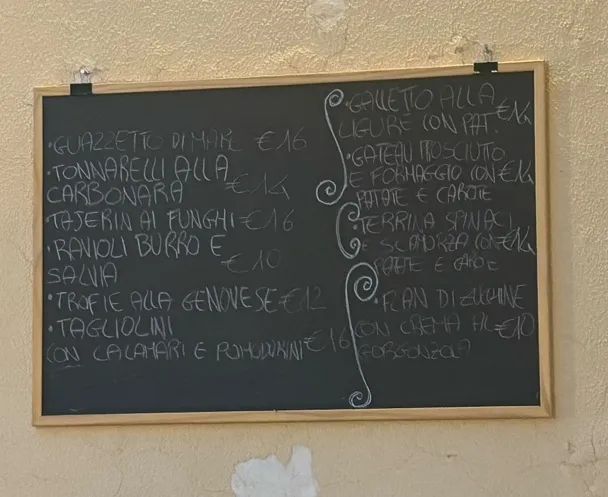 ·GUAZZETTO DI MARE €16
·TONNARELLI ALLA
CARBONARA €14
·TAJERIN AI FUNGHI €16
·RAVIOLI BURRO E
SALVIA €10
·TROFIE ALLA GENOVESE €12
·TAGLIOLINI
CON CALAMARI E POMODORINI €16
·GALLETTO ALLA
LIGURE CON PAT. €14
·GATEAU PROSCIUTTO
E FORMAGGIO CON €14
PATATE E CAROTE
·TERRINA SPINACI
E SCAMORZA CON €14
PATATE E CAROTE
·FLAN DI ZUCCHINE
CON CREMA AL €10
GORGONZOLA